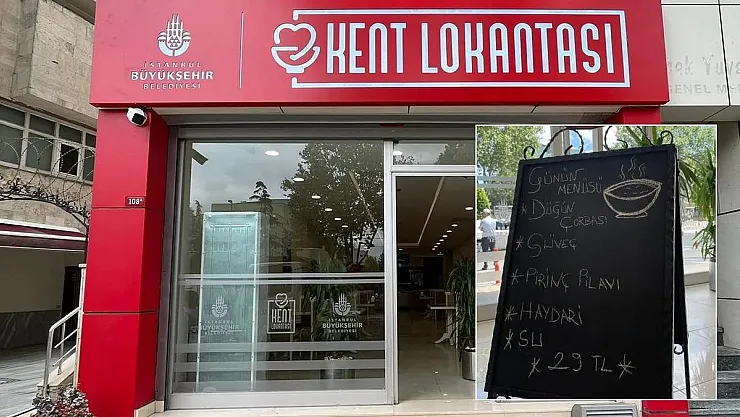 İSTANBUL
BÜYÜKŞEHİR
BELEDİYESİ
KENT LOKANTASI
108A
İSTANBUL
BÜYÜKŞEHİR
BELEDİYESİ
KENT
LOKANTASI
İSTANBUL
BÜYÜKŞEHİR
BELEDİYESİ
GENEL ME
GÜNÜN
MENÜSÜ
* DÜĞÜN
ÇORBASI
* GÜVEÇ
* PİRİNÇ PİLAVI
* HAYDARİ
* SU
* 29 TL *